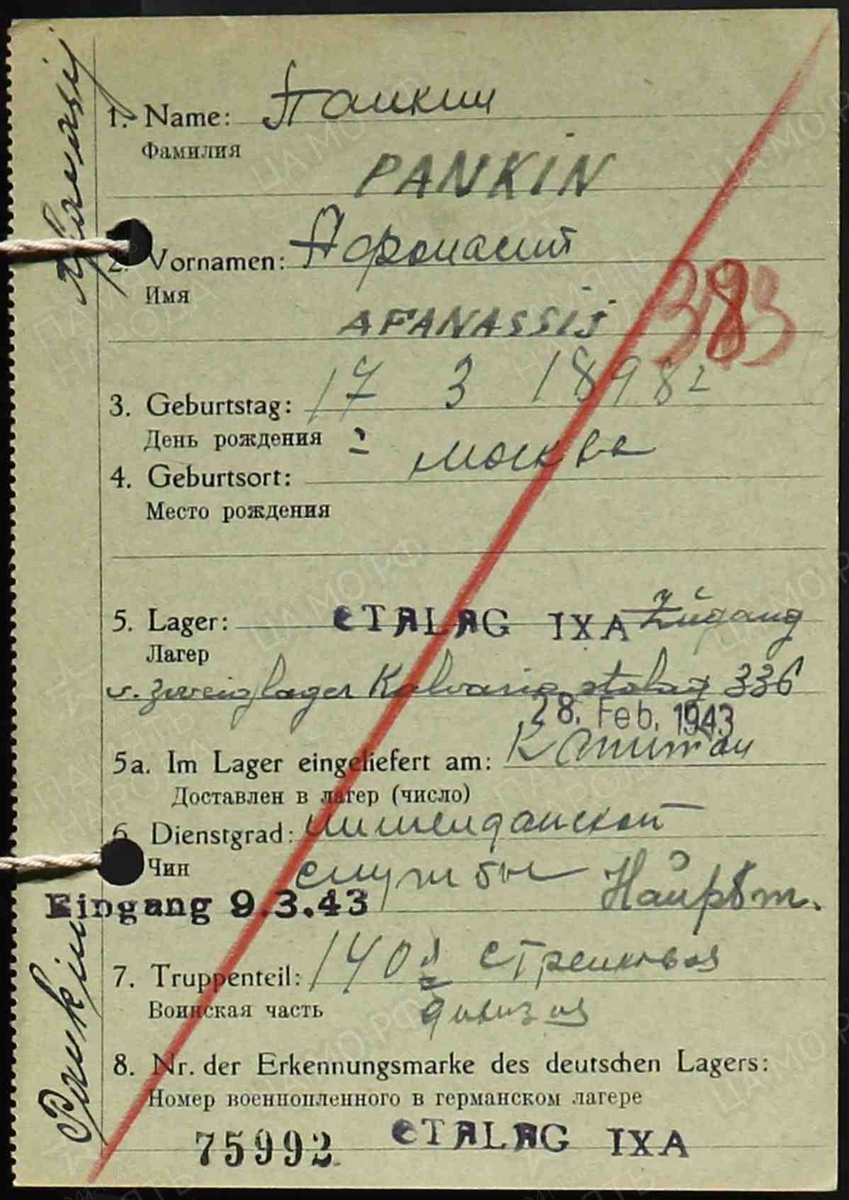 1. Name: Панкин
Фамилия
PANKIN
2. Vornamen: Афонасий
Имя
AFANASSIJ
383
3. Geburtstag: 17 3 1898 г
День рождения
4. Geburtsort: Москва
Место рождения
5. Lager: STALAG IXA Zugang
Лагер
v. Zweiglager Kalvaria stalag 336
28. Feb. 1943
5a. Im Lager eingeliefert am: Капитан
Доставлен в лагер (число)
6. Dienstgrad: интенданской
Чин
службы Hauptm.
Eingang 9.3.43
7. Truppenteil: 140я стрелковая
Воинская часть дивизия
8. Nr. der Erkennungsmarke des deutschen Lagers:
Номер военнопленного в германском лагере
75992 STALAG IXA
Afanassij
Pankin